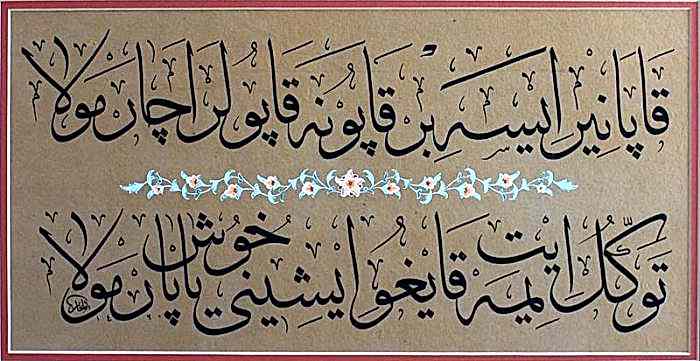 قاپانیر ایسه بر قاپو نه قاپولر اچار مولا
توكّل ایت یمه قایغو ایشینی خوش یاپار مولا